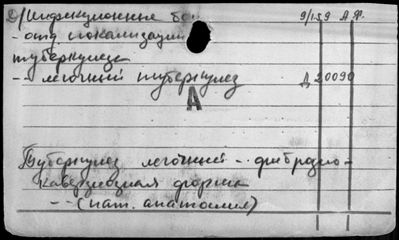 2/ Инфекционные бо
- отд локализации
туберкулеза
-- легочный туберкулез
9/159 А.Ф.
Д 20090
А
Туберкулез легочный -- фиброзно-
кавернозная форма
-- (пат. анатомия)